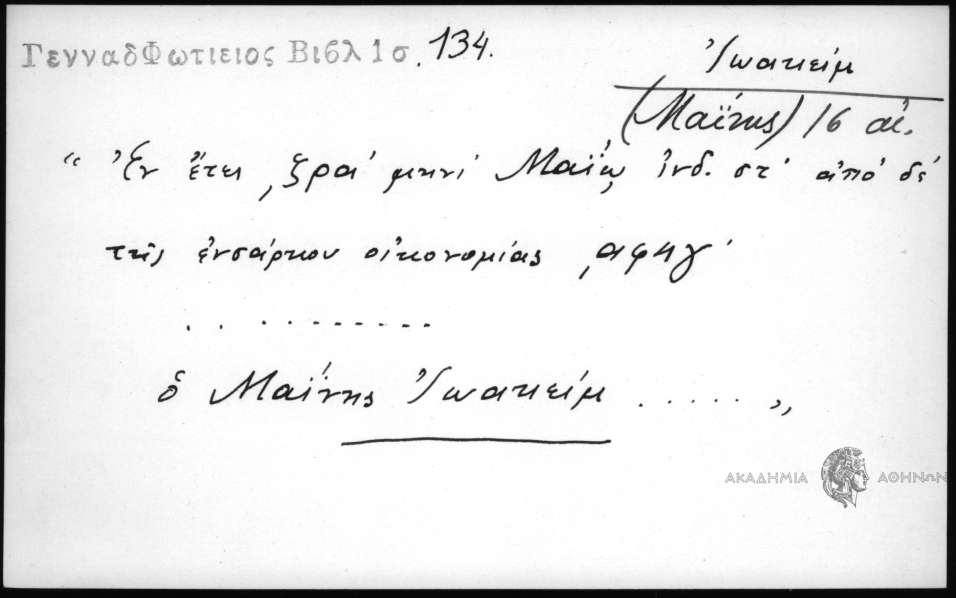 ΓενναδΦωτιειος Βιβλ 1σ. 134.
Ἰωακείμ
(Μαΐνης) 16 αἰ.
“ Ἐν ἔτει ͵ζρα΄ μηνὶ Μαΐῳ ἰνδ. στ΄ ἀπὸ δέ
τῆς ἐνσάρκου οἰκονομίας ͵αφηγ΄
. . . . . . . . . . .
ὁ Μαΐνης Ἰωακείμ . . . . . . ”
ΑΚΑΔΗΜΙΑ ΑΘΗΝΩΝ